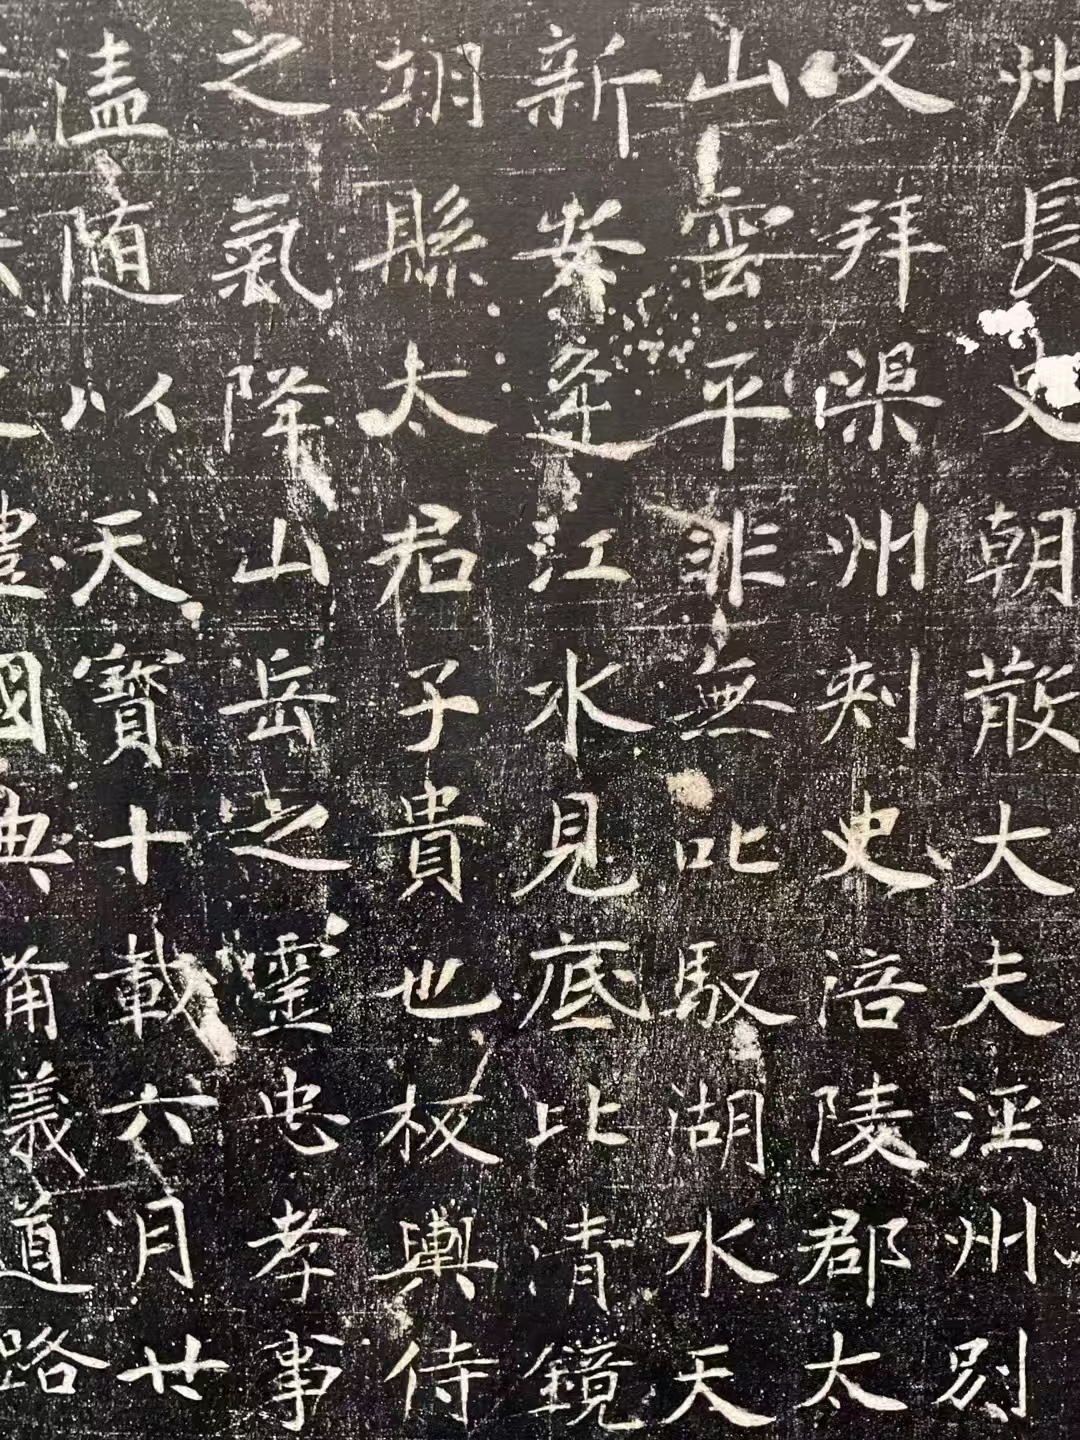 州長史朝散大夫涇州別
又拜渠州刾史涪陵郡太
山雲平非無叱馭湖水天
新逢江水見底比清鏡
翊縣太君子貴也板輿侍
之氣降山岳之靈忠孝事
溘随以天寶十載六月廿
之禮國典備義道路